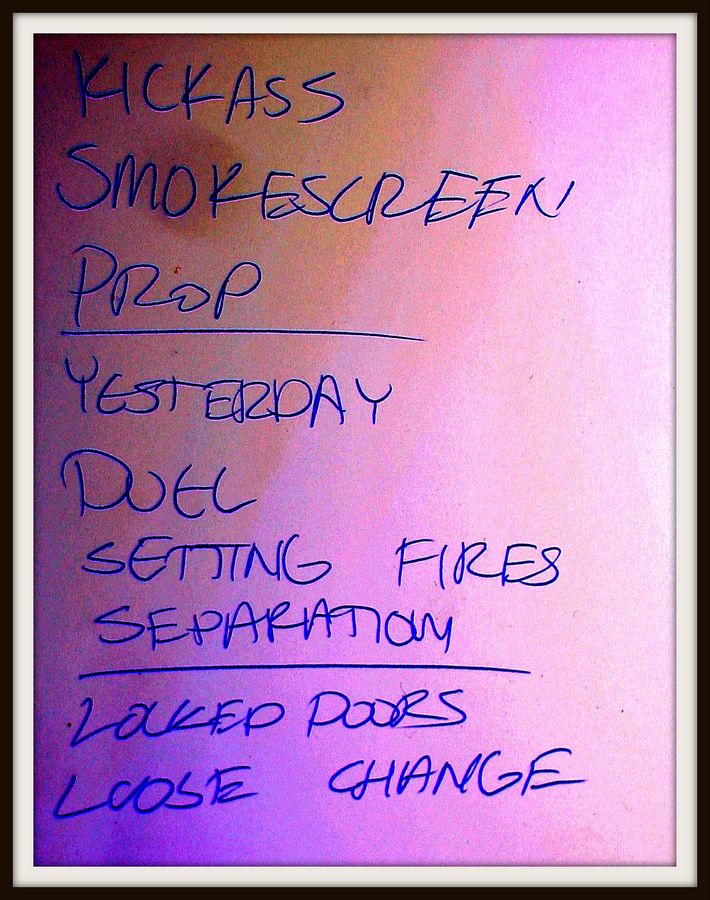 KICKASS
SMOKESCREEN
PROP
YESTERDAY
DUEL
SETTING FIRES
SEPARATION
LOCKED DOORS
LOOSE CHANGE